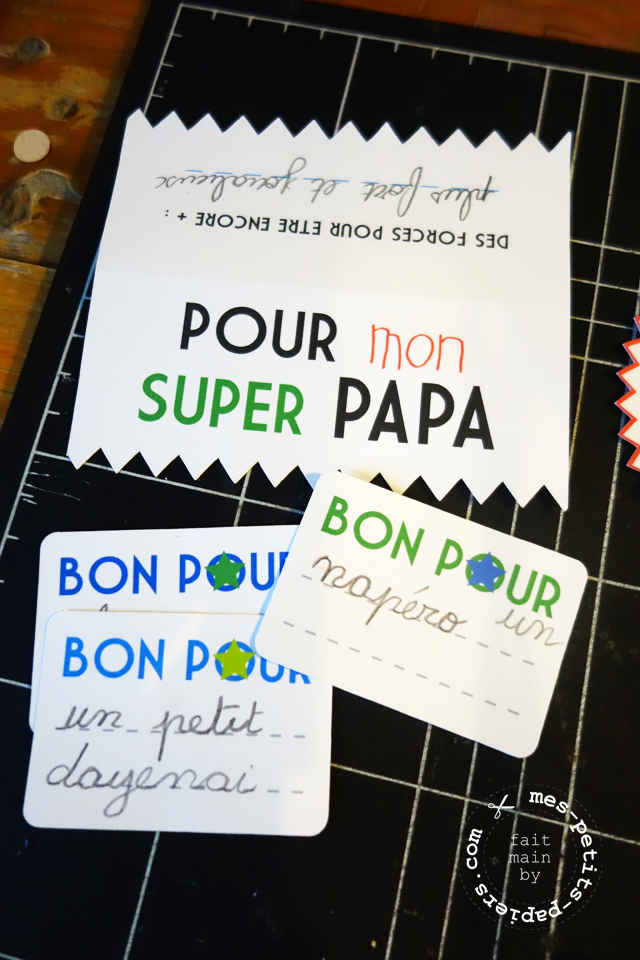 DES FORCES POUR ETRE ENCORE + :
plus fort et
POUR mon
SUPER PAPA
BON POUR
napéro un
BON POU
BON POUR
un petit
dayenai
fait
main
by
mes-petits-papiers.com